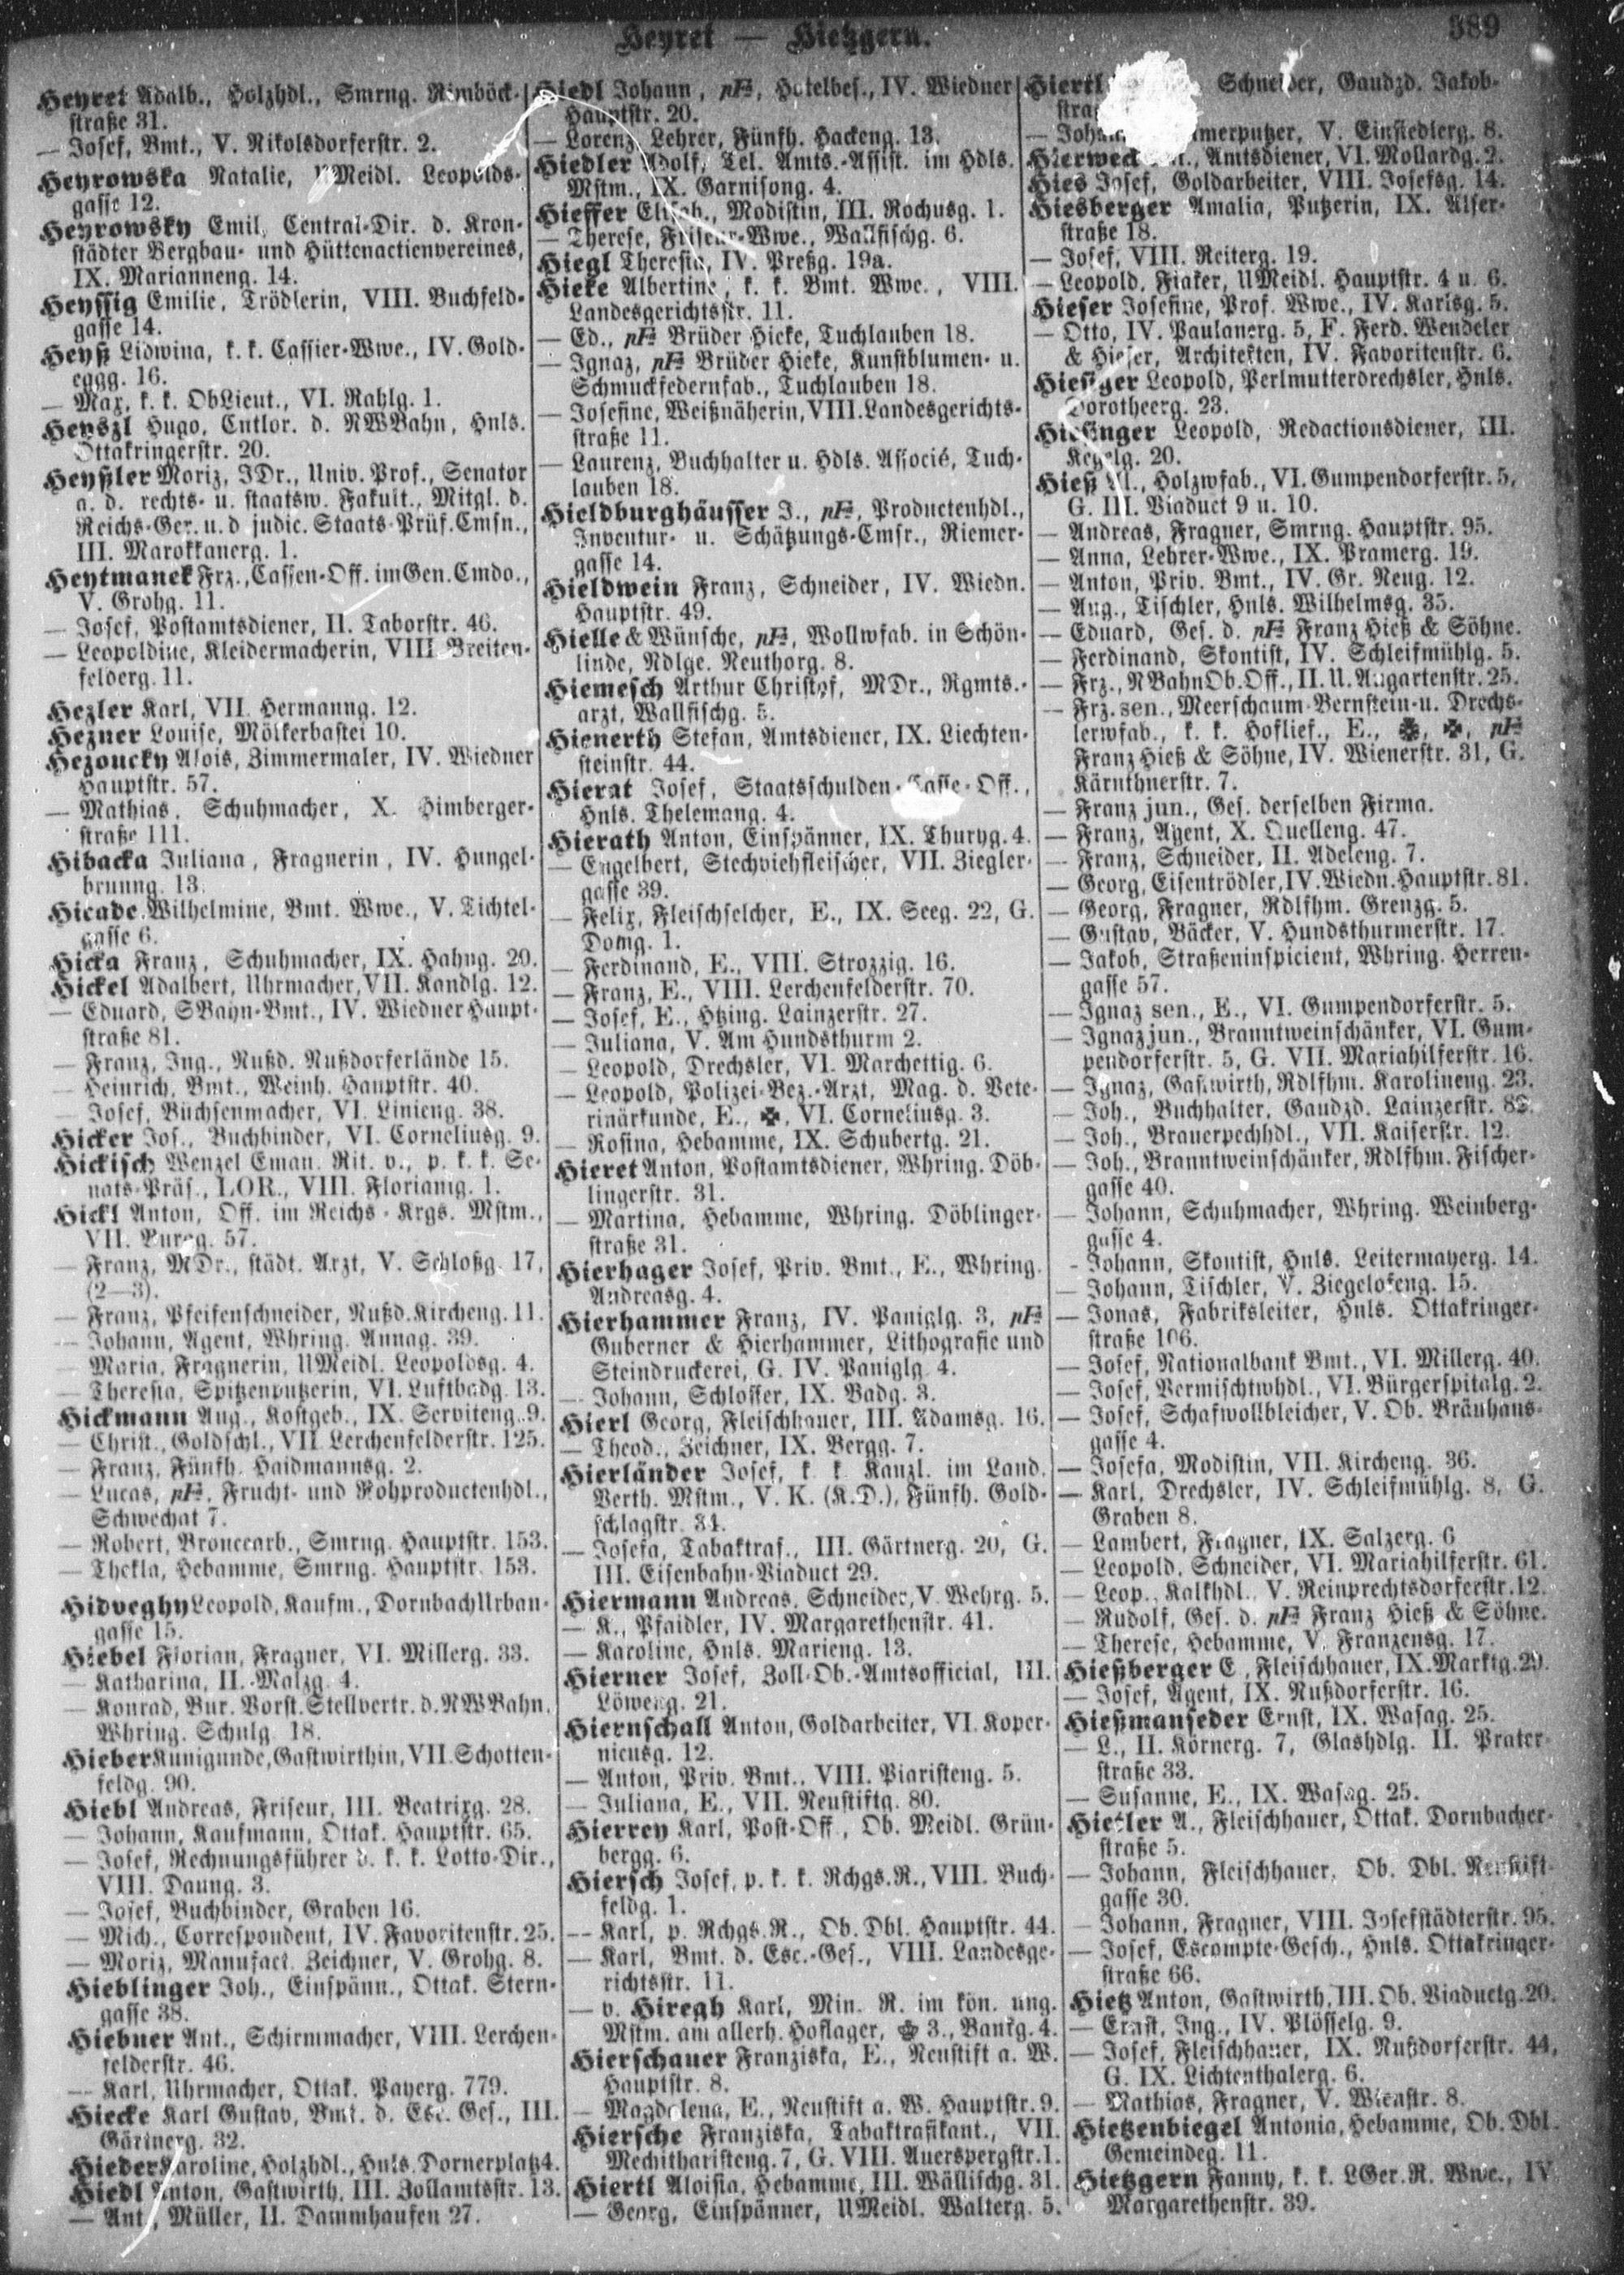 Heyret — Hietzgern.
389
Heyret Adalb., Holzhdl., Smrng. Rimböck-
straße 31.
— Josef, Bmt., V. Nikolsdorferstr. 2.
Heyrowska Natalie, UMeidl. Leopolds-
gasse 12.
Heyrowsky Emil, Central-Dir. d. Kron-
städter Bergbau- und Hüttenactienvereines,
IX. Marianneng. 14.
Heyssig Emilie, Trödlerin, VIII. Buchfeld-
gasse 14.
Heyß Lidwina, k. k. Cassier-Wwe., IV. Gold-
eggg. 16.
— Max, k. k. ObLieut., VI. Rahlg. 1.
Heyszl Hugo, Cntlor. d. NWBahn, Hnls.
Ottakringerstr. 20.
Heyßler Moriz, JDr., Univ. Prof., Senator
a. d. rechts- u. staatsw. Fakult., Mitgl. d.
Reichs-Ger. u. d. judic. Staats-Prüf. Cmsn.,
III. Marokkanerg. 1.
Heytmanek Frz., Cassen-Off. im Gen. Cmdo.,
V. Grohg. 11.
— Josef, Postamtsdiener, II. Taborstr. 46.
— Leopoldine, Kleidermacherin, VIII. Breiten-
felderg. 11.
Hezler Karl, VII. Hermanng. 12.
Hezner Louise, Mölkerbastei 10.
Hezoucky Alois, Zimmermaler, IV. Wiedner
Hauptstr. 57.
— Mathias, Schuhmacher, X. Himberger-
straße 111.
Hibacka Juliana, Fragnerin, IV. Hungel-
brunng. 13.
Hicade Wilhelmine, Bmt. Wwe., V. Tichtel-
gasse 6.
Hicka Franz, Schuhmacher, IX. Hahng. 20.
Hickel Adalbert, Uhrmacher, VII. Kandlg. 12.
— Eduard, SBahn-Bmt., IV. Wiedner Haupt-
straße 81.
— Franz, Ing., Nußd. Nußdorferlände 15.
— Heinrich, Bmt., Weinh. Hauptstr. 40.
— Josef, Büchsenmacher, VI. Linieng. 38.
Hicker Jos., Buchbinder, VI. Corneliusg. 9.
Hickisch Wenzel Eman. Rit. v., p. k. k. Se-
nats-Präs., LOR., VIII. Floriang. 1.
Hickl Anton, Off. im Reichs-Krgs. Mstm.,
VII. Burgg. 57.
— Franz, MDr., städt. Arzt, V. Schloßg. 17,
(2—3).
— Franz, Pfeifenschneider, Nußd. Kircheng. 11.
— Johann, Agent, Whring. Annag. 39.
— Maria, Fragnerin, UMeidl. Leopoldsg. 4.
— Theresia, Spitzenputzerin, VI. Luftbadg. 13.
Hickmann Aug., Kostgeb., IX. Serviteng. 9.
— Christ., Goldschl., VII. Lerchenfelderstr. 125.
— Franz, Fünfh. Haidmannsg. 2.
— Lucas, pFa, Frucht- und Rohproductenhdl.,
Schwechat 7.
— Robert, Broncearb., Smrng. Hauptstr. 153.
— Thekla, Hebamme, Smrng. Hauptstr. 153.
Hidveghy Leopold, Kaufm., Dornbach Urban-
gasse 15.
Hiebel Florian, Fragner, VI. Millerg. 33.
— Katharina, II. Malzg. 4.
— Konrad, Bur. Vorst. Stellvertr. d. NWBahn,
Whring. Schulg. 18.
Hieber Kunigunde, Gastwirthin, VII. Schotten-
feldg. 90.
Hiebl Andreas, Friseur, III. Beatrixg. 28.
— Johann, Kaufmann, Ottak. Hauptstr. 65.
— Josef, Rechnungsführer d. k. k. Lotto-Dir.,
VIII. Daung. 3.
— Josef, Buchbinder, Graben 16.
— Mich., Correspondent, IV. Favoritenstr. 25.
— Moriz, Manufact. Zeichner, V. Grohg. 8.
Hieblinger Joh., Einspänn., Ottak. Stern-
gasse 38.
Hiebner Ant., Schirmmacher, VIII. Lerchen-
felderstr. 46.
— Karl, Uhrmacher, Ottak. Payerg. 779.
Hiecke Karl Gustav, Bmt. d. Esc. Ges., III.
Gärtnerg. 32.
Hieder Karoline, Holzhdl., Hnls. Dornerplatz 4.
Hiedl Anton, Gastwirth, III. Zollamtsstr. 13.
— Ant., Müller, II. Dammhaufen 27.
Hiedl Johann, pFa, Hotelbes., IV. Wiedner
Hauptstr. 20.
— Lorenz, Lehrer, Fünfh. Hackeng. 13.
Hiedler Adolf, Tel. Amts.-Assist. im Hdls.
Mstm., IX. Garnisong. 4.
Hieffer Elisab., Modistin, III. Rochusg. 1.
— Therese, Friseur-Wwe., Wallfischg. 6.
Hiegl Theresia, IV. Preßg. 19a.
Hieke Albertine, k. k. Bmt. Wwe., VIII.
Landesgerichtsstr. 11.
— Ed., pFa Brüder Hieke, Tuchlauben 18.
— Ignaz, pFa Brüder Hieke, Kunstblumen- u.
Schmuckfedernfab., Tuchlauben 18.
— Josefine, Weißnäherin, VIII. Landesgerichts-
straße 11.
— Laurenz, Buchhalter u. Hdls. Associé, Tuch-
lauben 18.
Hieldburghäusser J., pFa, Productenhdl.,
Inventur- u. Schätzungs-Cmsr., Riemer-
gasse 14.
Hieldwein Franz, Schneider, IV. Wiedn.
Hauptstr. 49.
Hielle & Wünsche, pFa, Wollwfab. in Schön-
linde, Ndlge. Neuthorg. 8.
Hiemesch Arthur Christof, MDr., Rgmts.-
arzt, Wallfischg. 5.
Hienerth Stefan, Amtsdiener, IX. Liechten-
steinstr. 44.
Hierat Josef, Staatsschulden-Casse-Off.,
Hnls. Thelemang. 4.
Hierath Anton, Einspänner, IX. Thuryg. 4.
— Engelbert, Stechviehfleischer, VII. Ziegler-
gasse 39.
— Felix, Fleischselcher, E., IX. Seeg. 22, G.
Domg. 1.
— Ferdinand, E., VIII. Strozzig. 16.
— Franz, E., VIII. Lerchenfelderstr. 70.
— Josef, E., Htzing. Lainzerstr. 27.
— Juliana, V. Am Hundsthurm 2.
— Leopold, Drechsler, VI. Marchettig. 6.
— Leopold, Polizei-Bez.-Arzt, Mag. d. Vete-
rinärkunde, E., ✠, VI. Corneliusg. 3.
— Rosina, Hebamme, IX. Schubertg. 21.
Hieret Anton, Postamtsdiener, Whring. Döb-
lingerstr. 31.
— Martina, Hebamme, Whring. Döblinger-
straße 31.
Hierhager Josef, Priv. Bmt., E., Whring.
Andreasg. 4.
Hierhammer Franz, IV. Paniglg. 3, pFa
Guberner & Hierhammer, Lithografie und
Steindruckerei, G. IV. Paniglg. 4.
— Johann, Schlosser, IX. Badg. 3.
Hierl Georg, Fleischhauer, III. Adamsg. 16.
— Theod., Zeichner, IX. Bergg. 7.
Hierländer Josef, k. k. Kanzl. im Land.
Verth. Mstm., V. K. (K.D.), Fünfh. Gold-
schlagstr. 34.
— Josefa, Tabaktraf., III. Gärtnerg. 20, G.
III. Eisenbahn-Viaduct 29.
Hiermann Andreas, Schneider, V. Wehrg. 5.
— K., Pfaidler, IV. Margarethenstr. 41.
— Karoline, Hnls. Marieng. 13.
Hierner Josef, Zoll-Ob.-Amtsofficial, III.
Löweng. 21.
Hiernschall Anton, Goldarbeiter, VI. Koper-
nicusg. 12.
— Anton, Priv. Bmt., VIII. Piaristeng. 5.
— Juliana, E., VII. Neustiftg. 80.
Hierrey Karl, Post-Off., Ob. Meidl. Grün-
bergg. 6.
Hiersch Josef, p. k. k. Rchgs.R., VIII. Buch-
feldg. 1.
— Karl, p. Rchgs.R., Ob. Dbl. Hauptstr. 44.
— Karl, Bmt. d. Esc.-Ges., VIII. Landesge-
richtsstr. 11.
— v. Hiregh Karl, Min. R. im kön. ung.
Mstm. am allerh. Hoflager, ✠ 3., Bankg. 4.
Hierschauer Franziska, E., Neustift a. W.
Hauptstr. 8.
— Magdalena, E., Neustift a. W. Hauptstr. 9.
Hiersche Franziska, Tabaktrafikant., VII.
Mechitharisteng. 7, G. VIII. Auerspergstr. 1.
Hiertl Aloisia, Hebamme, III. Wällischg. 31.
— Georg, Einspänner, UMeidl. Walterg. 5.
Hiertl Schneider, Gaudzd. Jakob-
— V. Einsiedlerg. 8.
Hierweck Amtsdiener, VI. Mollardg. 2.
Hies Josef, Goldarbeiter, VIII. Josefsg. 14.
Hiesberger Amalia, Putzerin, IX. Alser-
straße 18.
— Josef, VIII. Reiterg. 19.
— Leopold, Fiaker, UMeidl. Hauptstr. 4 u. 6.
Hieser Josefine, Prof. Wwe., IV. Karlsg. 5.
— Otto, IV. Paulanerg. 5, F. Ferd. Wendeler
& Hieser, Architekten, IV. Favoritenstr. 6.
Hiesiger Leopold, Perlmutterdrechsler, Hnls.
Dorotheerg. 23.
Hiesinger Leopold, Redactionsdiener, III.
Kegelg. 20.
Hieß Al., Holzwfab., VI. Gumpendorferstr. 5,
G. III. Viaduct 9 u. 10.
— Andreas, Fragner, Smrng. Hauptstr. 95.
— Anna, Lehrer-Wwe., IX. Pramerg. 19.
— Anton, Priv. Bmt., IV. Gr. Neug. 12.
— Aug., Tischler, Hnls. Wilhelmsg. 35.
— Eduard, Ges. d. pFa Franz Hieß & Söhne.
— Ferdinand, Skontist, IV. Schleifmühlg. 5.
— Frz., NBahnOb.Off., II. U. Augartenstr. 25.
— Frz. sen., Meerschaum-Bernstein-u. Drechs-
lerwfab., k. k. Hoflief., E., ✠, ✠, pFa
Franz Hieß & Söhne, IV. Wienerstr. 31, G.
Kärnthnerstr. 7.
— Franz jun., Ges. derselben Firma.
— Franz, Agent, X. Quelleng. 47.
— Franz, Schneider, II. Adeleng. 7.
— Georg, Eisentrödler, IV. Wiedn. Hauptstr. 81.
— Georg, Fragner, Rdlfhm. Grenzg. 5.
— Gustav, Bäcker, V. Hundsthurmerstr. 17.
— Jakob, Straßeninspicient, Whring. Herren-
gasse 57.
— Ignaz sen., E., VI. Gumpendorferstr. 5.
— Ignaz jun., Branntweinschänker, VI. Gum-
pendorferstr. 5, G. VII. Mariahilferstr. 16.
— Ignaz, Gastwirth, Rdlfhm. Karolineng. 23.
— Joh., Buchhalter, Gaudzd. Lainzerstr.
— Joh., Brauerpechhdl., VII. Kaiserstr. 12.
— Joh., Branntweinschänker, Rdlfhm. Fischer-
gasse 40.
— Johann, Schuhmacher, Whring. Weinberg-
gasse 4.
— Johann, Skontist, Hnls. Leitermayerg. 14.
— Johann, Tischler, V. Ziegelofeng. 15.
— Jonas, Fabriksleiter, Hnls. Ottakringer-
straße 106.
— Josef, Nationalbank Bmt., VI. Millerg. 40.
— Josef, Vermischtwhdl., VI. Bürgerspitalg. 2.
— Josef, Schafwollbleicher, V. Ob. Bräuhaus-
gasse 4.
— Josefa, Modistin, VII. Kircheng. 36.
— Karl, Drechsler, IV. Schleifmühlg. 8, G.
Graben 8.
— Lambert, Fragner, IX. Salzerg. 6
— Leopold, Schneider, VI. Mariahilferstr. 61.
— Leop., Kalkhdl., V. Reinprechtsdorferstr. 12.
— Rudolf, Ges. d. pFa Franz Hieß & Söhne.
— Therese, Hebamme, V. Franzensg. 17.
Hießberger E., Fleischhauer, IX. Marktg. 29.
— Josef, Agent, IX. Nußdorferstr. 16.
Hießmanseder Ernst, IX. Wasag. 25.
— L., II. Körnerg. 7, Glashdlg. II. Prater-
straße 33.
— Susanne, E., IX. Wasag. 25.
Hietler A., Fleischhauer, Ottak. Dornbacher-
straße 5.
— Johann, Fleischhauer, Ob. Dbl. Neustift-
gasse 30.
— Johann, Fragner, VIII. Josefstädterstr. 95.
— Josef, Escompte-Gesch., Hnls. Ottakringer-
straße 66.
Hietz Anton, Gastwirth, III. Ob. Viaductg. 20.
— Ernst, Ing., IV. Plösselg. 9.
— Josef, Fleischhauer, IX. Nußdorferstr. 44,
G. IX. Lichtenthalerg. 6.
— Mathias, Fragner, V. Wienstr. 8.
Hietzenbiegel Antonia, Hebamme, Ob. Dbl.
Gemeindeg. 11.
Hietzgern Fanny, k. k. LGer.R. Wwe., IV.
Margarethenstr. 39.